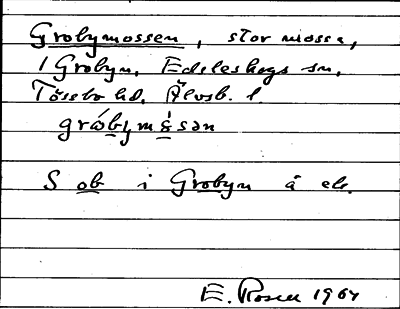 Grobymossen, stor mosse,
i Grobyn, Edsleskogs sn,
Tössbo hd, Älvsb. l.
gråbymåsən
S ob i Grobyn å ek.
E. Rosell 1964